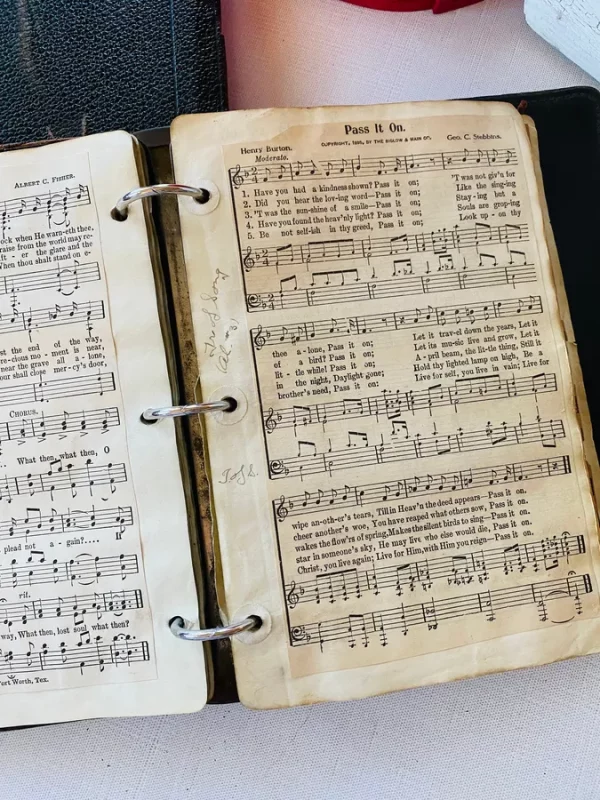 ALBERT C. FISHER.
ock when He warn-eth thee,
raise from the world may re-
lt - er the glare and the
When thou shalt stand on e-
st the end of the way,
re-cious mo - ment is near,
near the grave all a - lone,
our shall close mer-cy's door,
CHORUS.
What then, what then, O
plead not a - gain?....
rit.
way, What then, lost soul what then?
ort Worth, Tex.
Pass It On.
COPYRIGHT, 1895, BY THE BIGLOW & MAIN CO.
Henry Burton. Geo. C. Stebbins.
Moderato.
1. Have you had a kindness shown? Pass it on; 'T was not giv'n for
2. Did you hear the lov-ing word—Pass it on; Like the sing-ing
3. 'T was the sun-shine of a smile—Pass it on; Stay-ing but a
4. Have you found the heav'nly light? Pass it on; Souls are grop-ing
5. Be not self-ish in thy greed, Pass it on; Look up - on thy
thee a - lone, Pass it on; Let it trav-el down the years, Let it
of a bird? Pass it on; Let its mu-sic live and grow, Let it
lit - tle while! Pass it on; A - pril beam, the lit-tle thing, Still it
in the night, Daylight gone; Hold thy lighted lamp on high, Be a
brother's need, Pass it on; Live for self, you live in vain; Live for
wipe an-oth-er's tears, Till in Heav'n the deed appears—Pass it on.
cheer another's woe, You have reaped what others sow, Pass it on.
wakes the flow'rs of spring, Makes the silent birds to sing—Pass it on.
star in someone's sky, He may live who else would die, Pass it on.
Christ, you live again; Live for Him, with Him you reign—Pass it on.